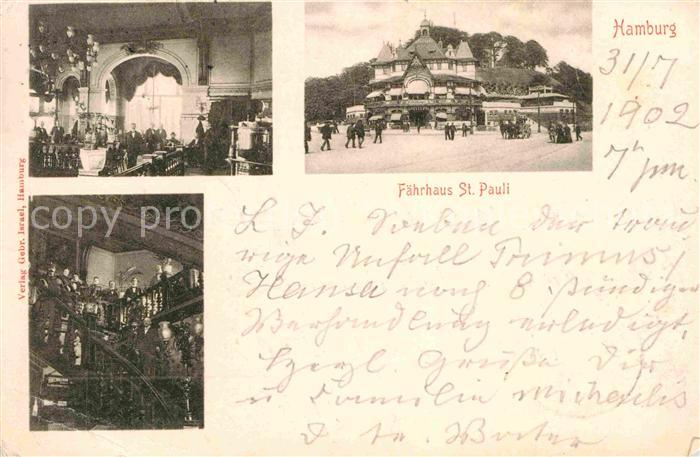 Hamburg
31/7
1902
7h pm.
Fährhaus St. Pauli
Verlag Gebr. Israel, Hamburg
copy
L. J. Soeben der trau
rige Unfall Primus /
Hansa nach 8 stündiger
Verhandlung erledigt,
Herzl. Grüße Dir
u Familie Michaelis